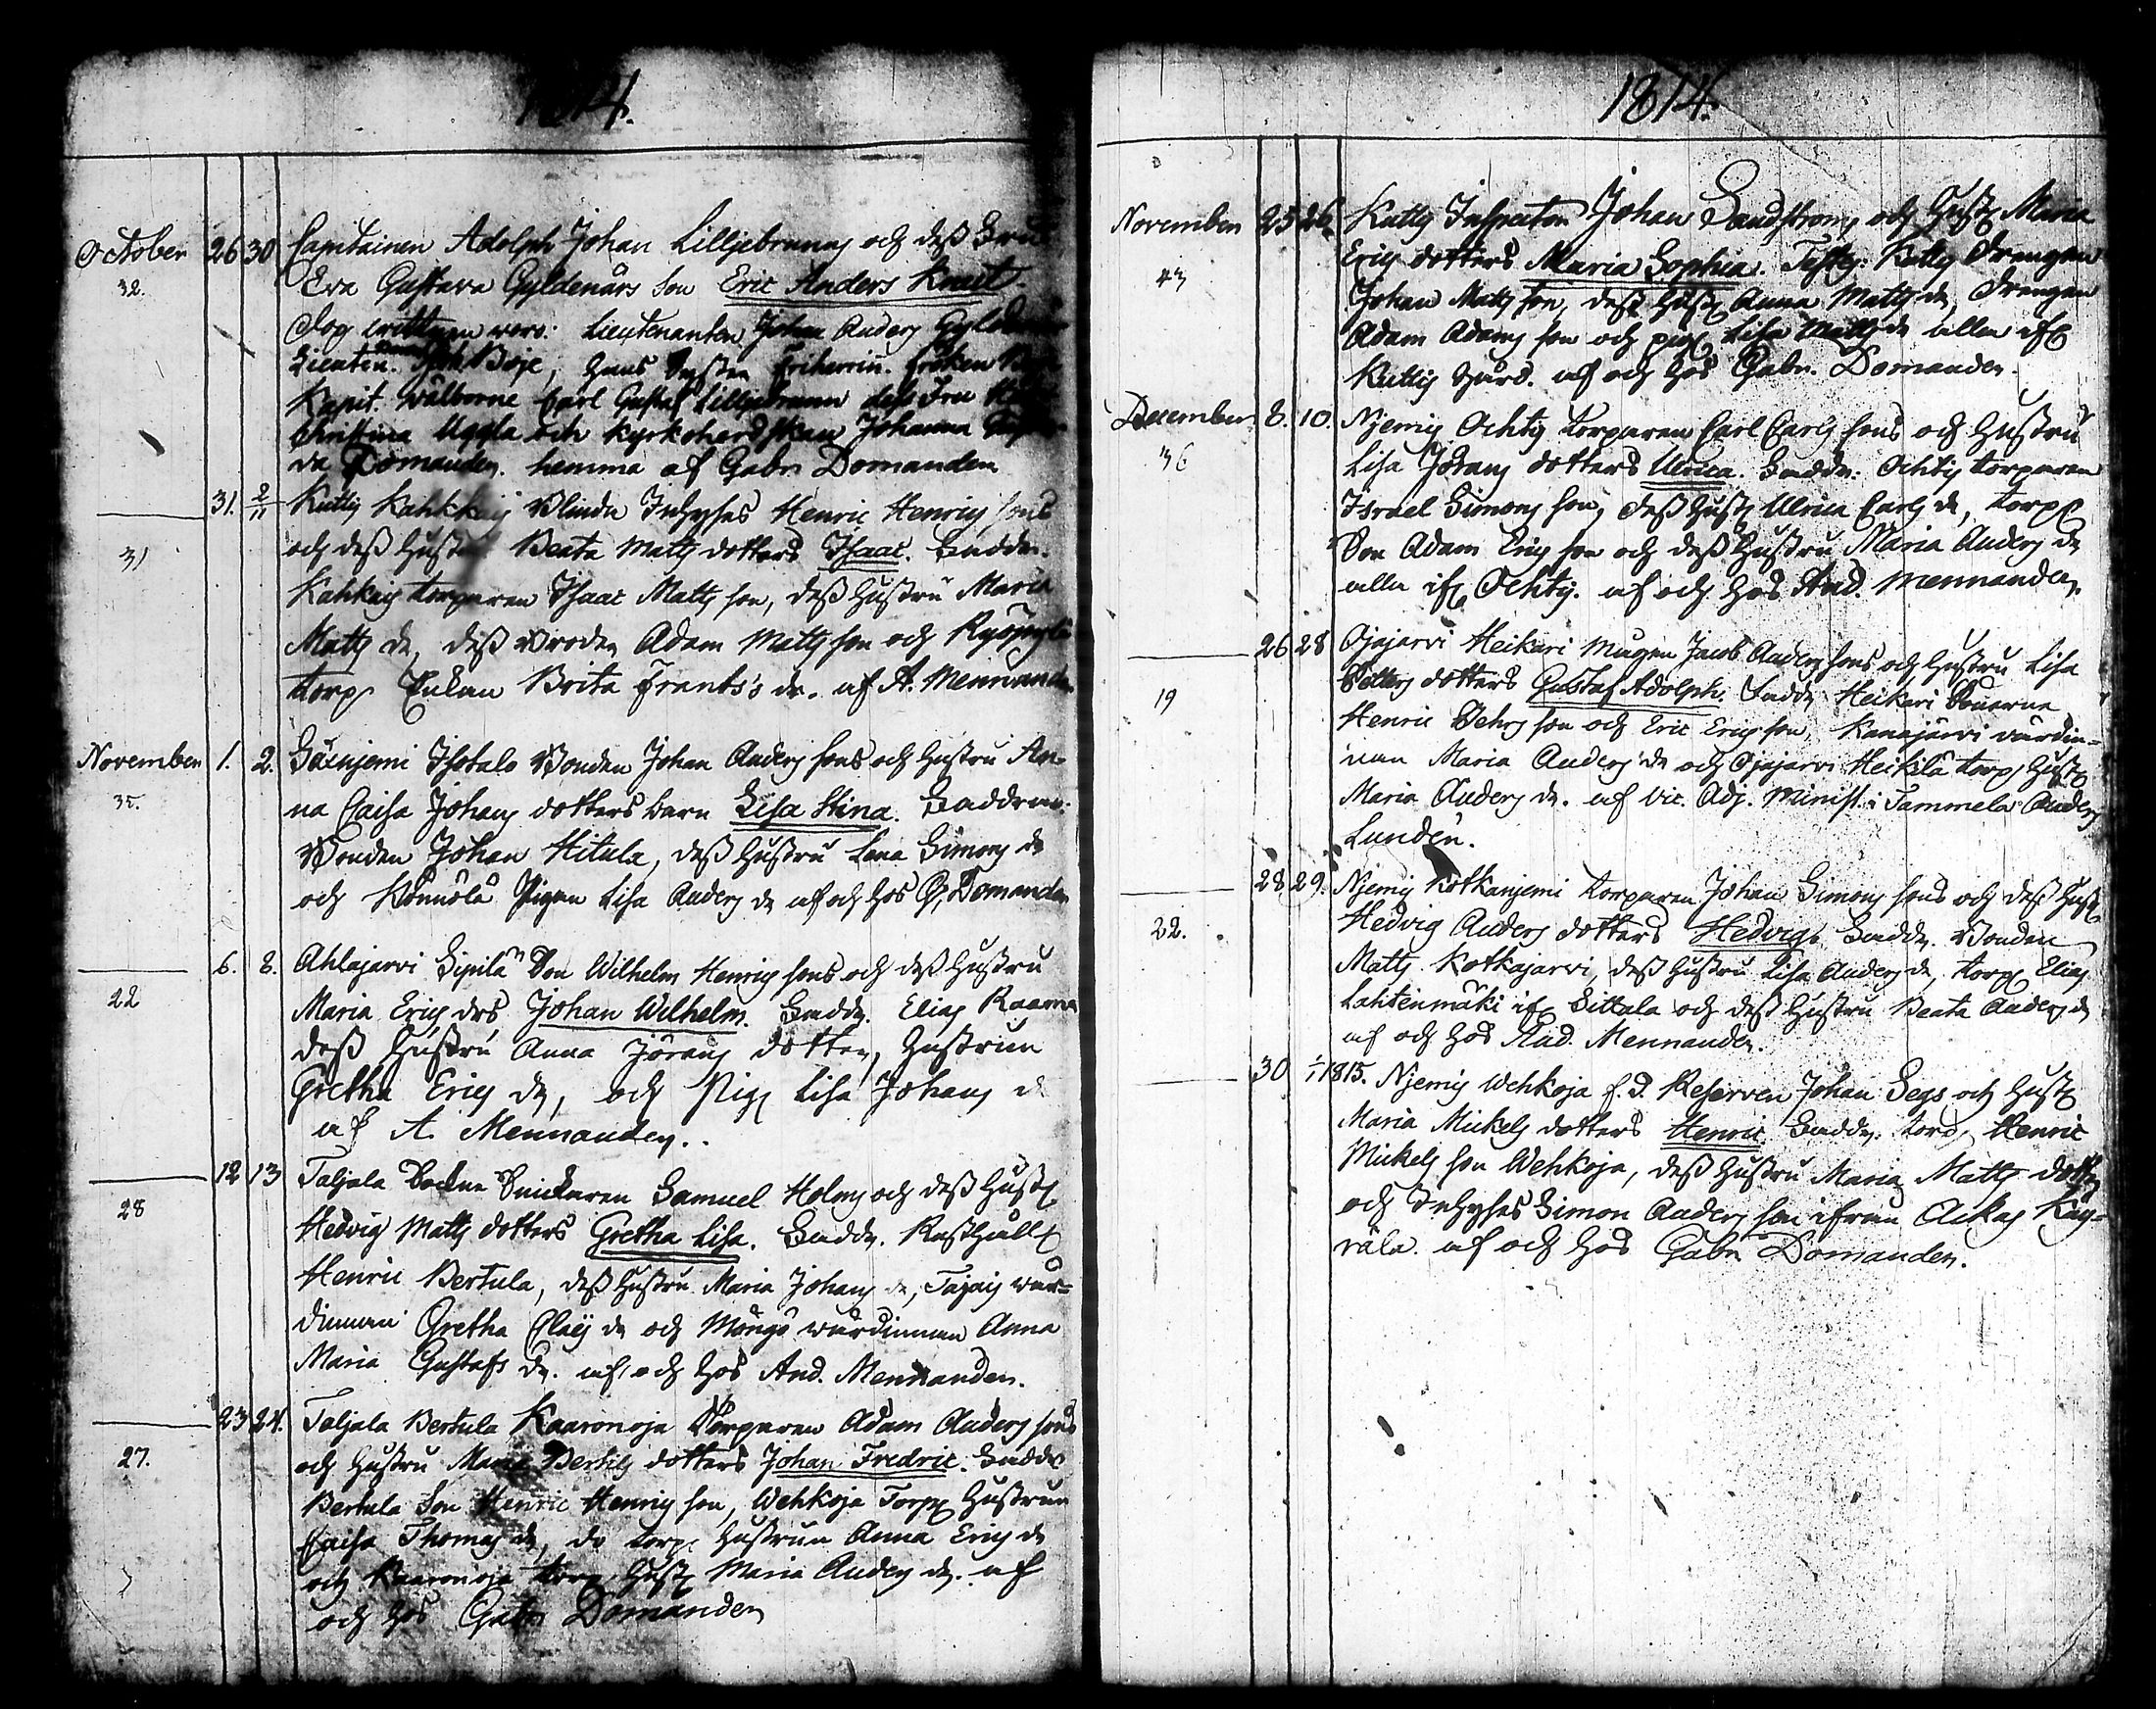 1814.
October 26 30 Capitainen Adolph Johan Lilljebrunns och dess Fru
32. Eva Gustava Gyldenärs son Eric Anders Knut.
wittnen woro: Lieutenanten Johan Anders
Lieuten. Boje, hans Syster Friherrin. Fröken
Kapit. wälborne Carl Gustaf Lilljebrunn dess Fru
Christina Uggla och kyrkoherdskan Johanna
Domander. hemma af Gabr. Domander
31. 2/11 Kutty Blinde Inhyses Henric Henrics sons
31 och dess Hustru Beata Matts dotters Isaac. Fadder.
Kahkais torparen Isaac Matts son, dess Hustru Maria
Matts dr, dess Broder Adam Matts son och
torp. Enkan Brita Frants's dr. af A. Mennander
November 1. 2. Isotalo Bonden Johan Anders sons och Hustru An-
35. na Caisa Johans dotters barn Lisa Stina. Faddrar.
Bonden Johan Hitula, dess Hustru Lena Simons dr
och Pigan Lisa Anders dr af och hos G. Domander
6. 8. Ahlajarvi Sipilä Son Wilhelm Henrics sons och dess Hustru
22 Maria Erics drs Johan Wilhelm. Faddr. Elias
dess Hustru Anna Jörans dotter, Hustrun
Gretha Erics dr, och Pig. Lisa Johans dr
af A. Mennander.
12 13 Taljala Sockne Snickaren Samuel Holms och dess Hustr.
28 Hedvig Matts dotters Gretha Lisa. Faddr. Rusthåll.
Henric Bertula, dess Hustru Maria Johans dr, wär-
dinnan Gretha dr och wärdinnan Anna
Maria Gustafs dr. af och hos And. Mennander.
23 24. Taljala Bertula Kaaronoja Torparen Adam Anders sons
27. och Hustru Maria Bertils dotters Johan Fredric. Faddr.
Bertula Son Henric Henrics son, Wehkoja Torp. Hustrun
Caisa Thomas dr, do torp. Hustrun Anna Erics dr
och Kaaronoja torp. Hustr. Maria Anders dr. af
och hos Gabr. Domander
1814.
November 25 26. Kutty Inspector Johan Sandströms och Hustr. Maria
43 Erics dotters Maria Sophia. Testes: Drengen
Johan Matts son, dess Hustr. Anna Matts dr, Drengen
Adam Adams son och pig. Lisa Matts dr alla ifr.
Kuttis Gård. af och hos Gabr. Domander.
December 8. 10. Njemis Ochtis torparen Carl Carls sons och Hustru
36 Lisa Johans dotters Ulrica. Faddr: Ochtis torparen
Israel Simons son, dess Hustr. Ulrica Carls dr, torp.
Son Adam Erics son och dess Hustru Maria Anders dr
alla ifr. Ochtis. af och hos And. Mennander.
26 28 Ojajarvi Heikari Mågen Jacob Anders sons och Hustru Lisa
19 dotters Gustaf Adolph. Faddr. Heikari Sönerne
Henric son och Eric Erics son, Kanajärvi värdin-
nan Maria Anders dr och Ojajarvi Heikilä torp. Hustr.
Maria Anders dr. af vic. Adj. Minist. i Tammela Anders
Lundén.
28 29. Njemis Kotkanjemi torparen Johan Simons sons och dess Hustr.
22. Hedvig Anders dotters Hedvig. Faddr. Bonden
Matts Kotkajarvi, dess Hustru Lisa Anders dr, torp. Elias
Lahtenmäki ifr. Sittala och dess Hustru Beata Anders dr
af och hos And. Mennander.
30 1/1 1815. Njemis Wehkoja f. d. Reserven Johan Segs och Hustr.
Maria Mickels dotters Henric. Faddr. torp. Henric
Mickels son Wehkoja, dess Hustru Maria Matts dotter
och Inhyses Simon Anders son ifrån
af och hos Gabr. Domander.